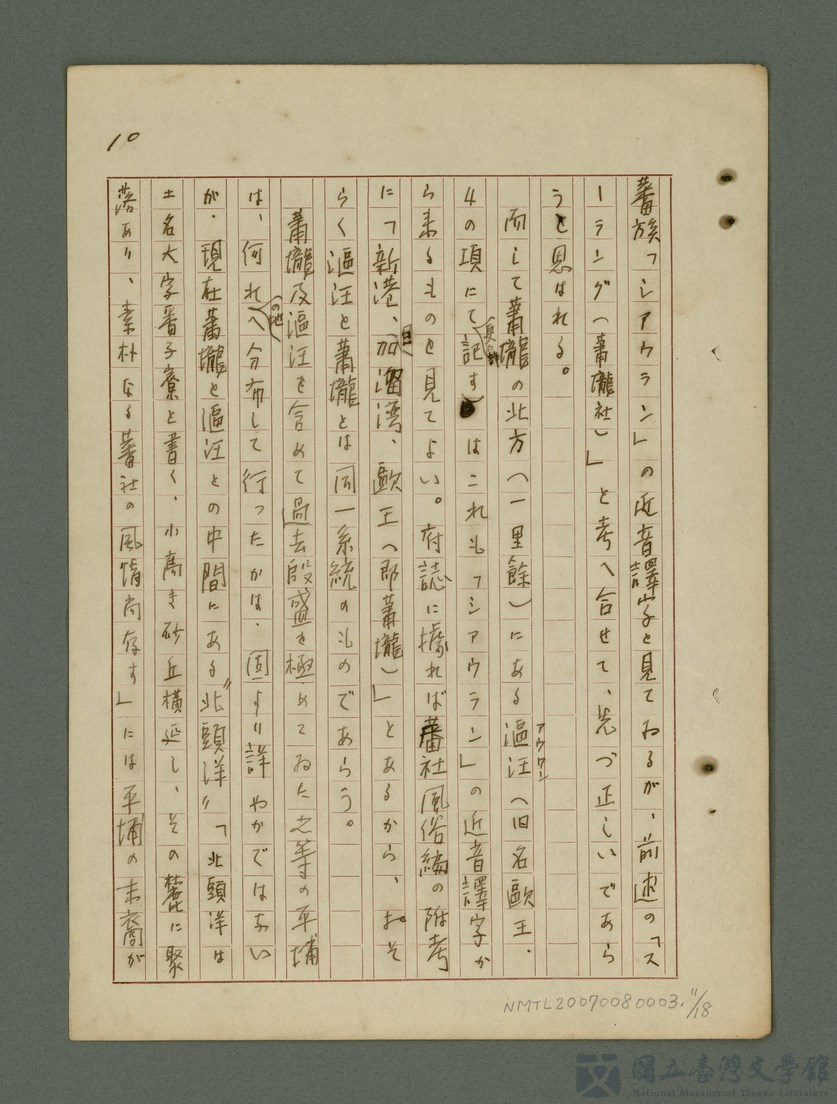 10
蕃族「シアウラン」の近音譯字と見てゐるが、前述の「ス
ーラング(蕭壠社)」と考へ合せて、先づ正しいであら
うと思はれる。
而して蕭壠の北方(一里餘)にある漚汪(旧名歐王、
アウワン
4の項にて記す はこれも「シアウラン」の近音譯字か
ら来るものと見てよい。府誌に據れば蕃社風俗編の附考
に「新港、目加溜湾、歐王(即蕭壠)」とあるから、おそ
らく漚汪と蕭壠とは同一系統のものであらう。
蕭壠及漚汪を含めて過去殷盛を極めてゐた之等の平埔
は、何れの地へ分布して行ったかは、固より詳やかではない
が、現在蕭壠と漚汪との中間にある〝北頭洋〟「北頭洋は
土名大字番子寮と書く、小高き砂丘横延し、その麓に聚
落あり、素朴なる蕃社の風情尚存す」には平埔の末裔が
NMTL20070080003, 11/18
國立臺灣文學館
National Museum of Taiwan Literature